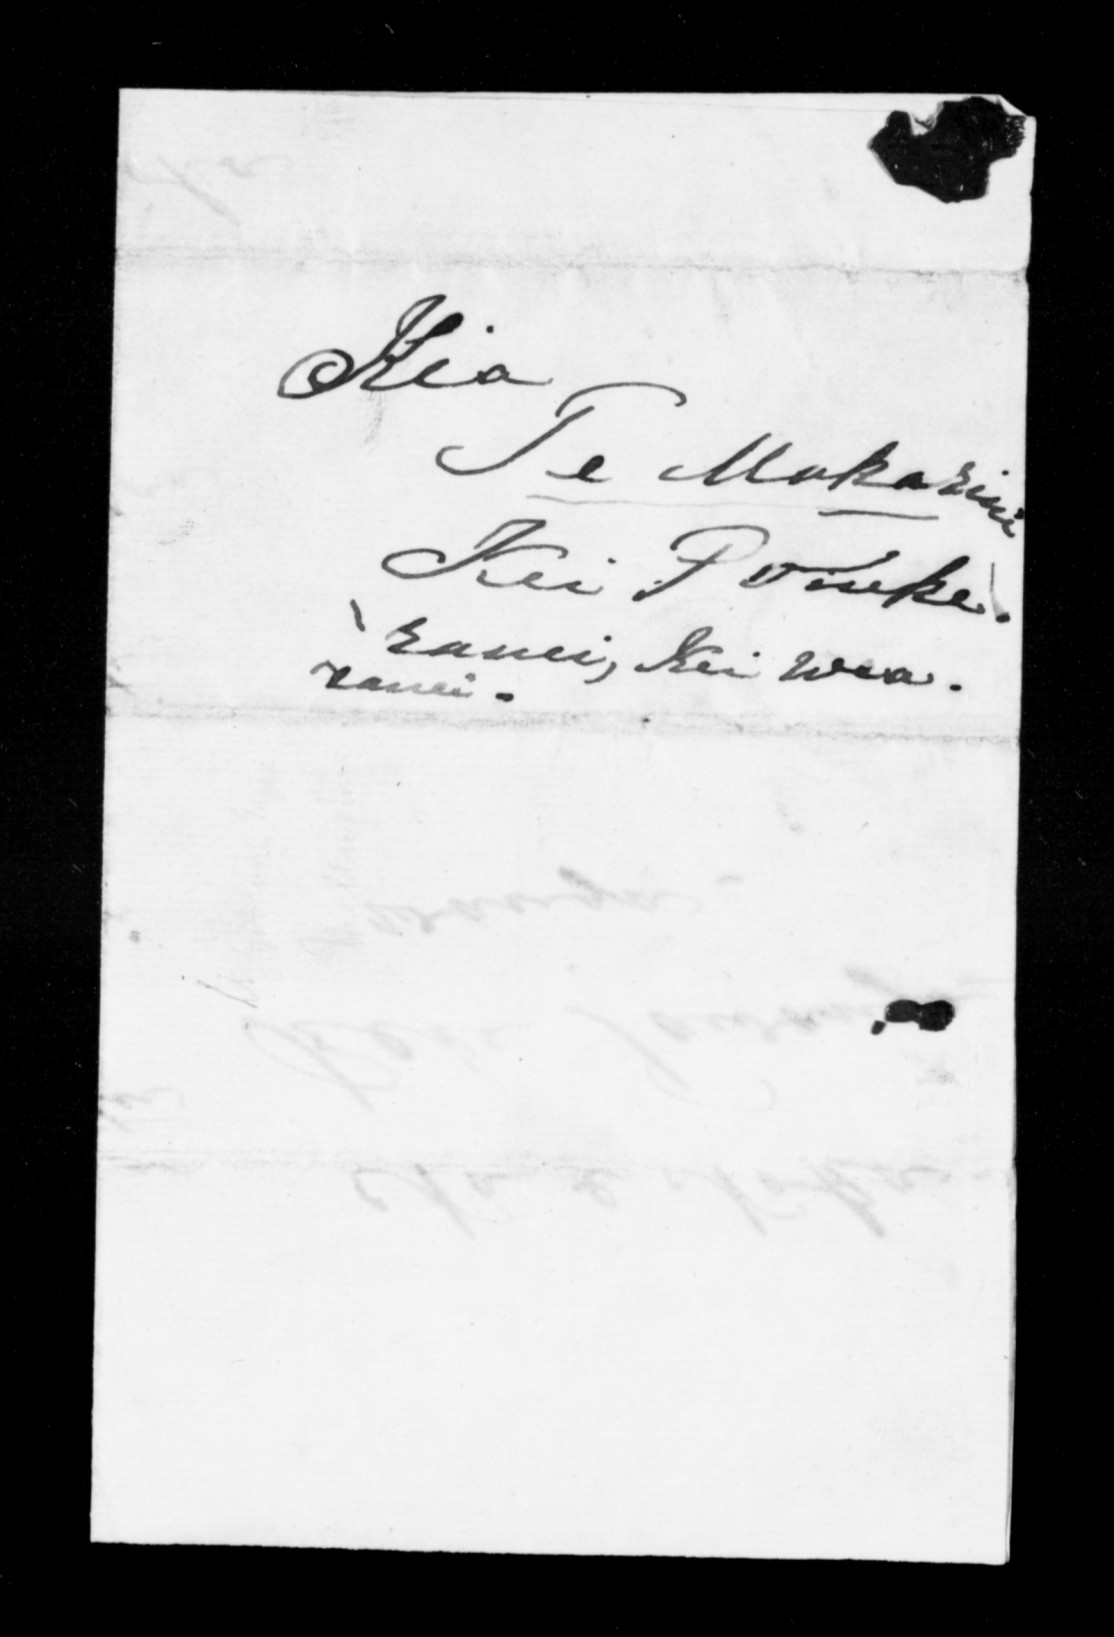 Kia
Te Makarini
Kei Poneke.
ranei, Kei wea
ranei.